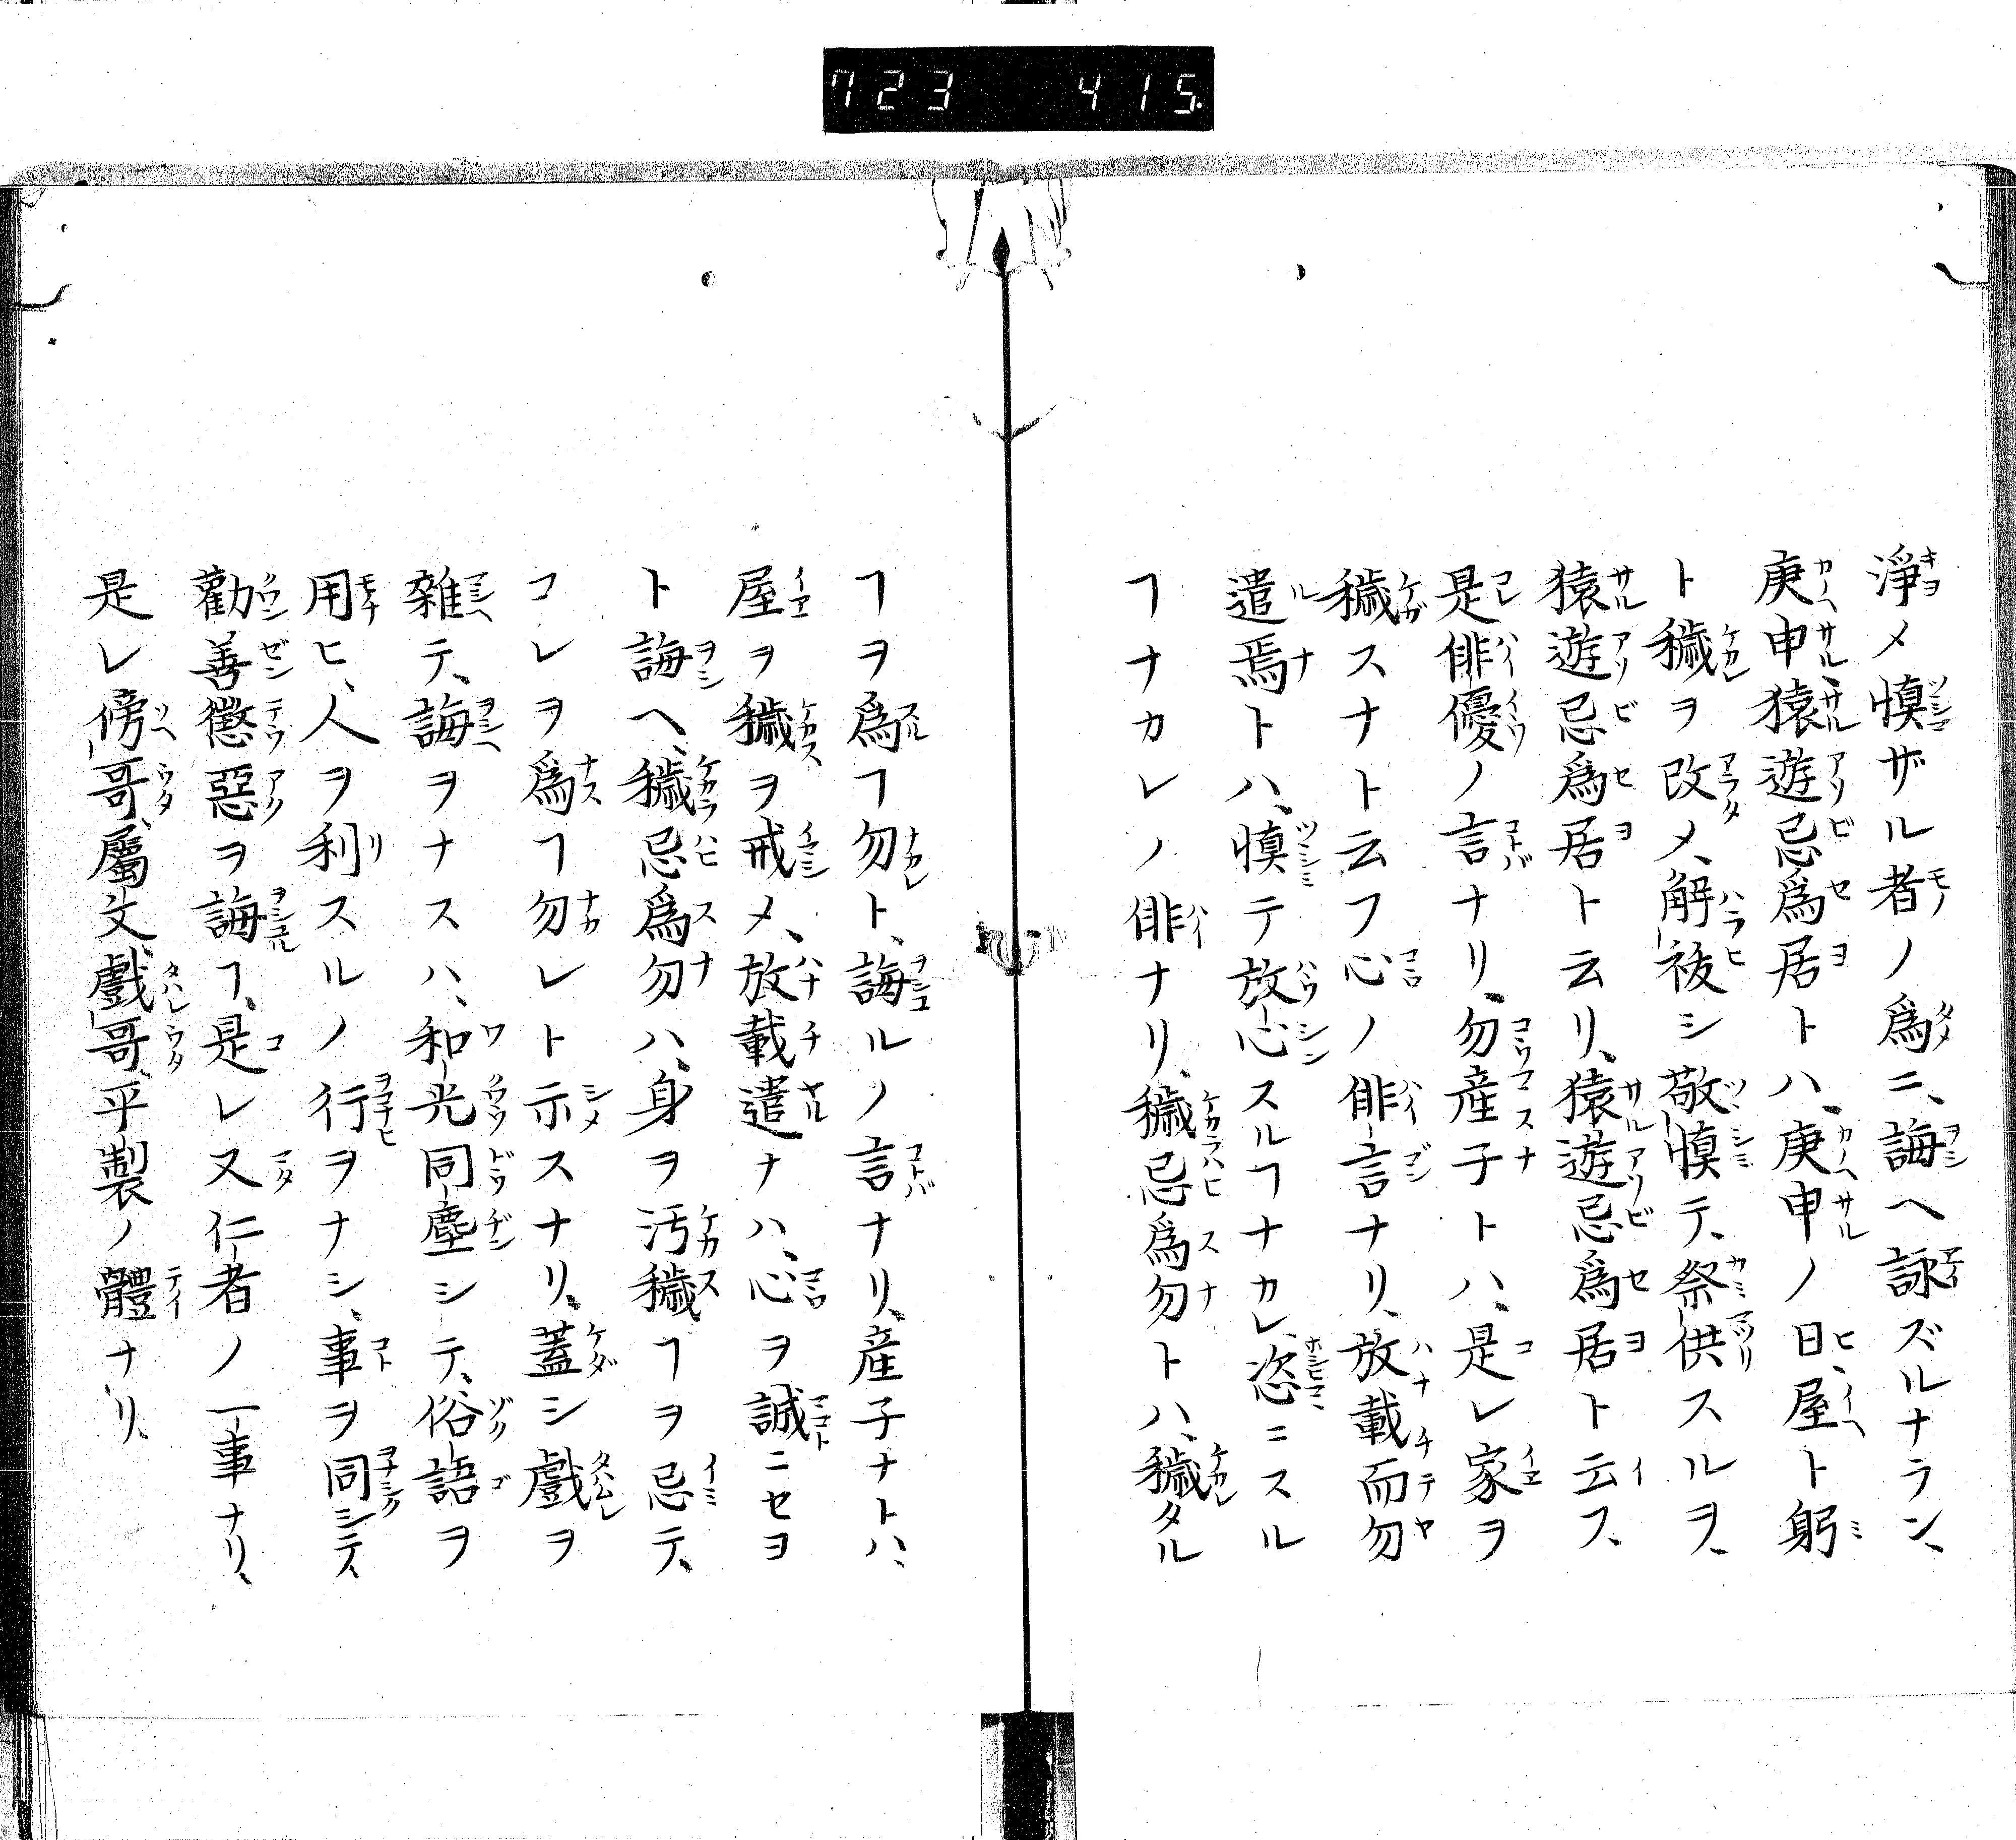 723 415
淨メ愼ザル者ノ爲ニ、誨ヘ詠ズルナラン、
庚申、猿遊忌爲居トハ、庚申ノ日、屋ト躬
ト穢ヲ改メ、解祓シ敬愼テ、祭供スルヲ、
猿遊忌爲居ト云リ、猿遊忌爲居ト云フ、
是俳優ノ言ナリ、勿産子トハ、是レ家ヲ
穢スナト云フ心ノ俳言ナリ、放載而勿
遣焉トハ、愼テ放心スルヿナカレ、恣ニスル
ヿナカレノ俳ナリ、穢忌爲勿トハ、穢タル
ヿヲ爲ヿ勿ト、誨ルノ言ナリ、産子ナトハ、
屋ヲ穢ヲ戒メ、放載遣ナハ、心ヲ誠ニセヨ
ト誨ヘ、穢忌爲勿ハ、身ヲ汚穢ヿヲ忌テ、
コレヲ爲ヿ勿レト示スナリ、蓋シ戲ヲ
雜テ、誨ヲナスハ、和光同塵シテ、俗語ヲ
用ヒ、人ヲ利スルノ行ヲナシ、事ヲ同シテ、
勸善懲惡ヲ誨ヿ、是レ又仁者ノ一事ナリ、
是レ傍哥、屬文、戲哥、平製ノ體ナリ、